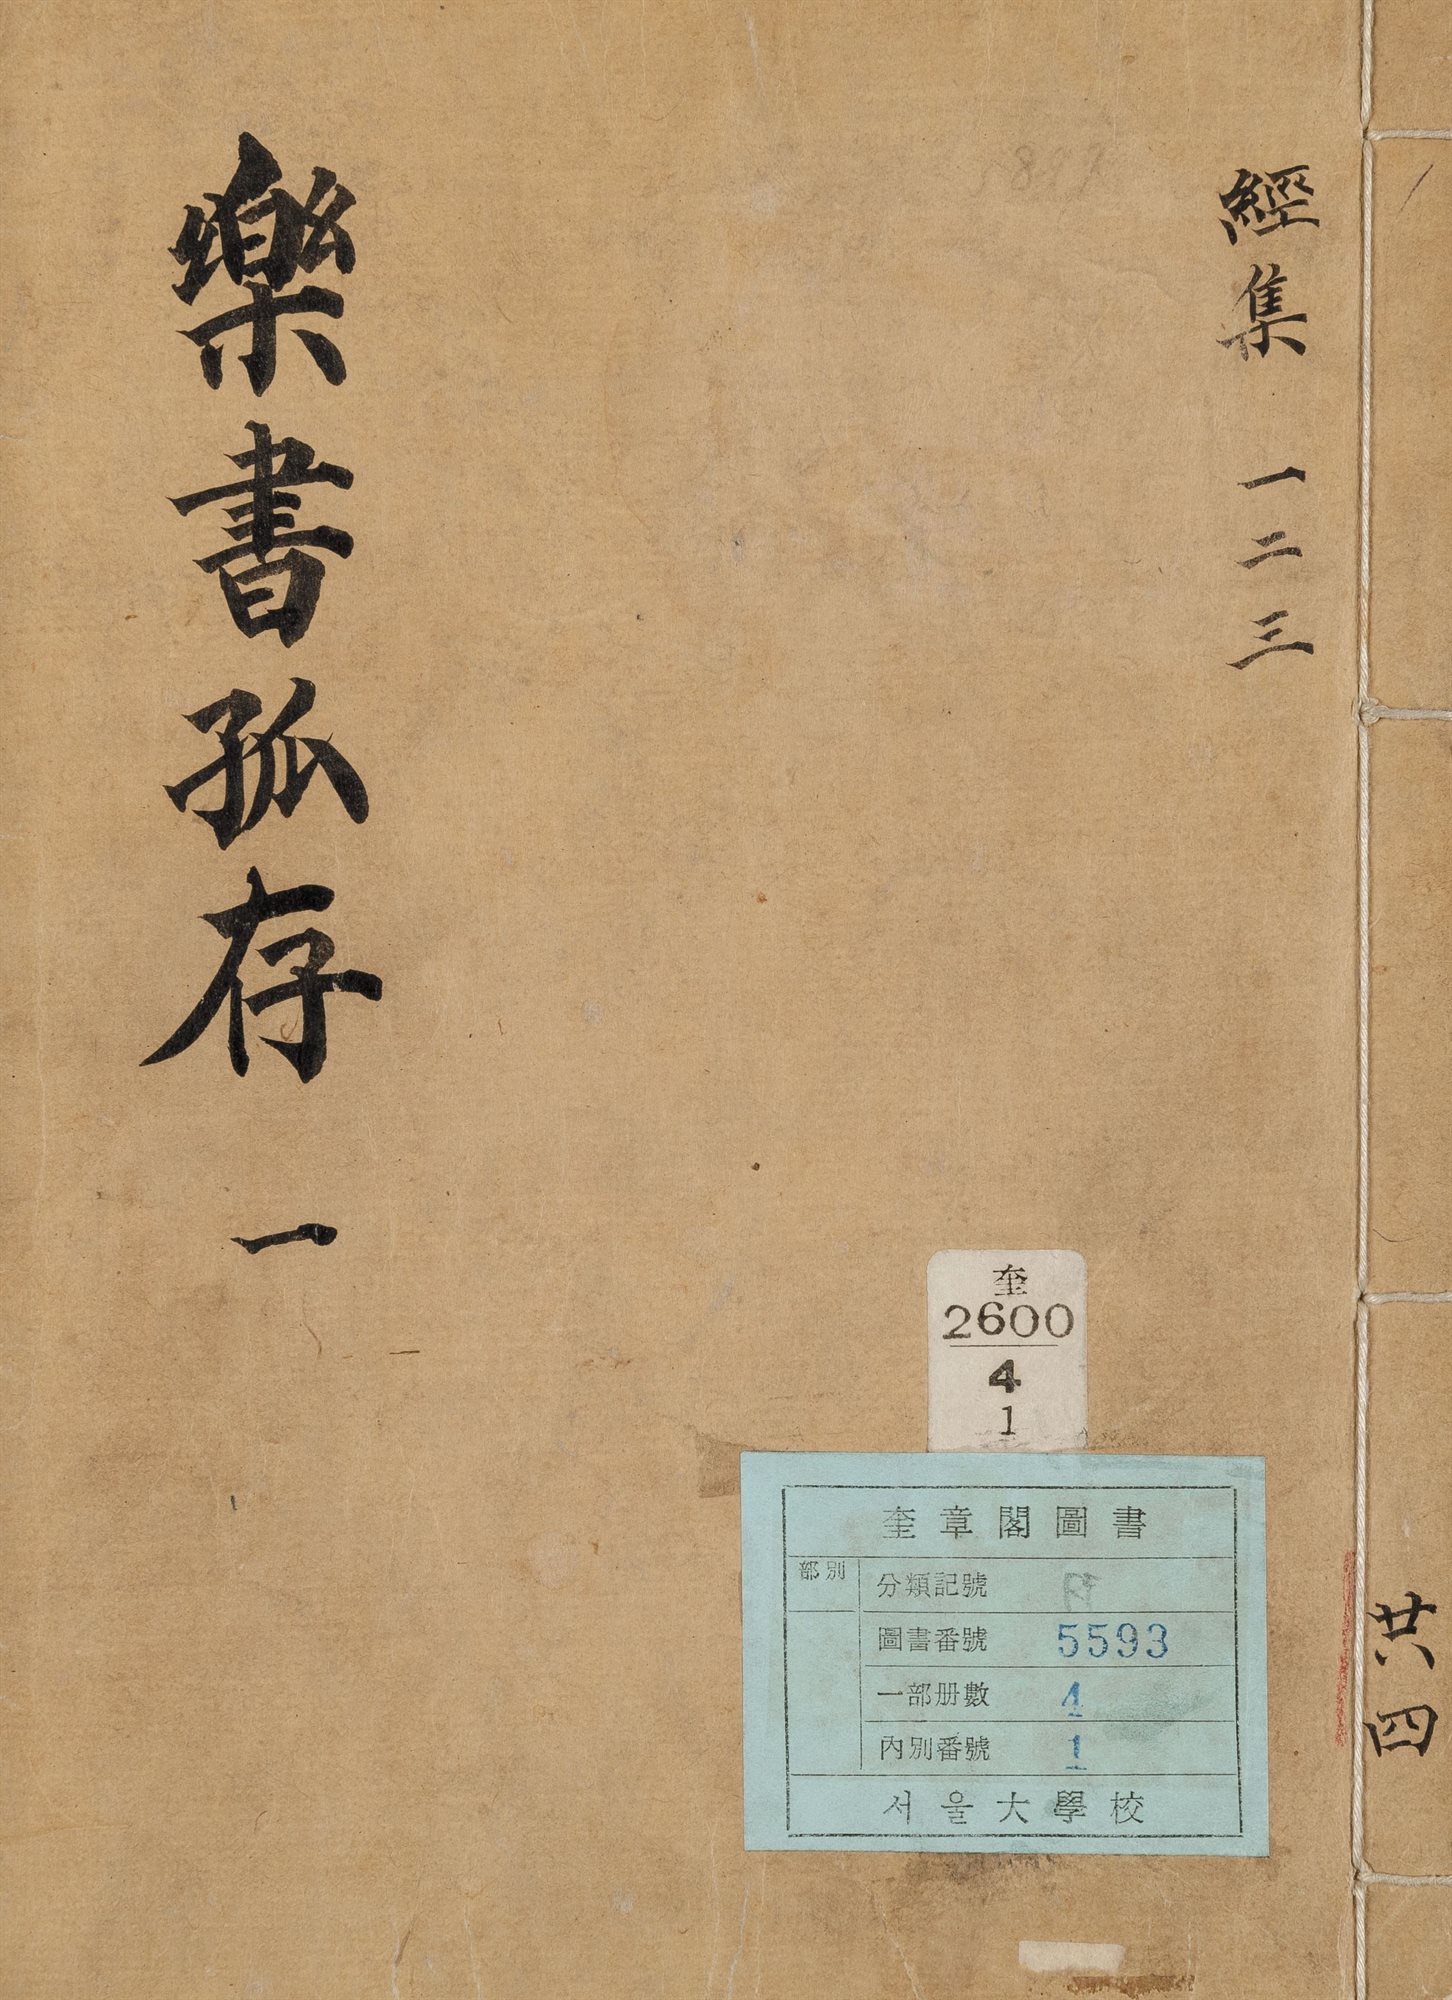 經集 一二三
樂書孤存 一
共四
奎
2600
4
1
奎章閣圖書
部別
分類記號
圖書番號 5593
一部册數 4
內別番號 1
서울大學校